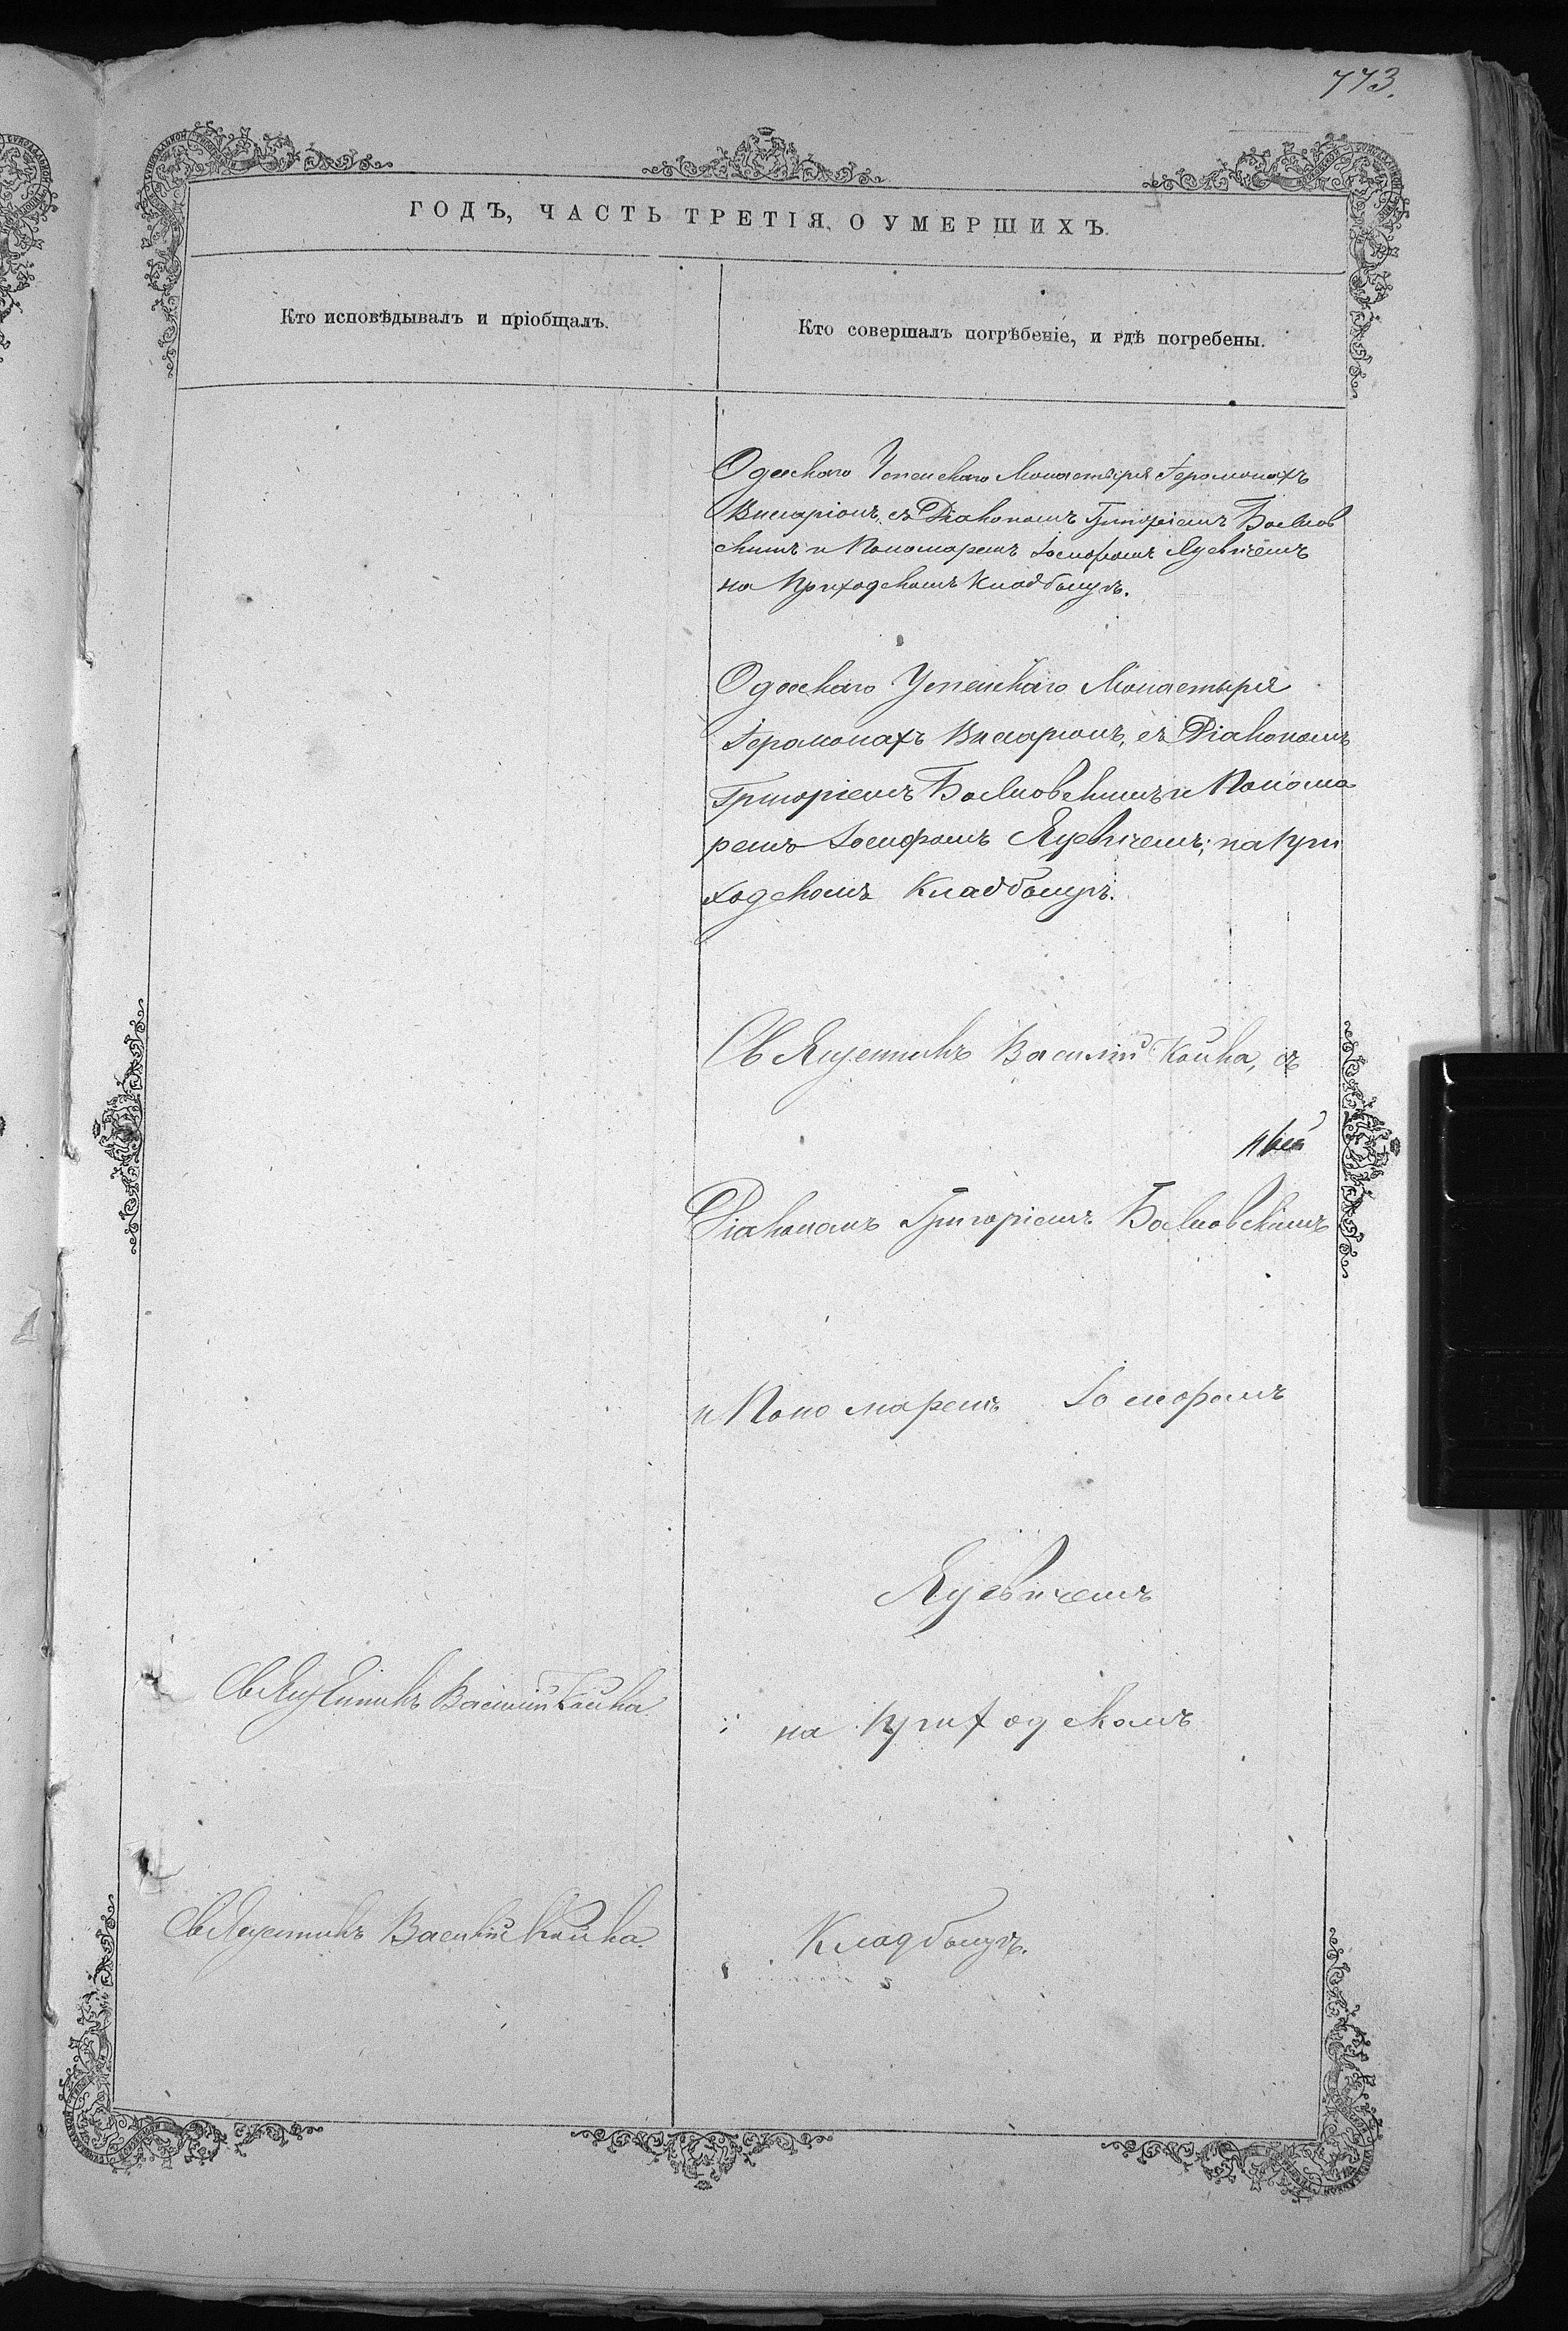 773.
ГОДЪ, ЧАСТЬ ТРЕТІЯ, О УМЕРШИХЪ.
Кто исповѣдывалъ и пріобщалъ.
Кто совершалъ погрѣбеніе, и гдѣ погребены.
Одескаго Успенскаго Монастыря Іеромонахъ
Висаріонъ, съ Діакономъ Григоріемъ Балнов
скимъ и Пономаремъ Іосифомъ Яцевичемъ
на Приходскомъ Кладбищѣ.
Одескаго Успенскаго Монастыря
Іеромонахъ Висаріонъ, съ Діакономъ
Григоріемъ Балновскимъ и Понома
ремъ Іосифомъ Яцевичемъ; на При
ходскомъ Кладбищѣ.
Священникъ Василій Койка, съ
Діакономъ Григоріемъ Балновскимъ
и Пономаремъ Іосифомъ
Яцевичемъ
Священникъ Василій Койка
; на Приходскомъ
Священникъ Василій Койка.
Кладбищѣ.